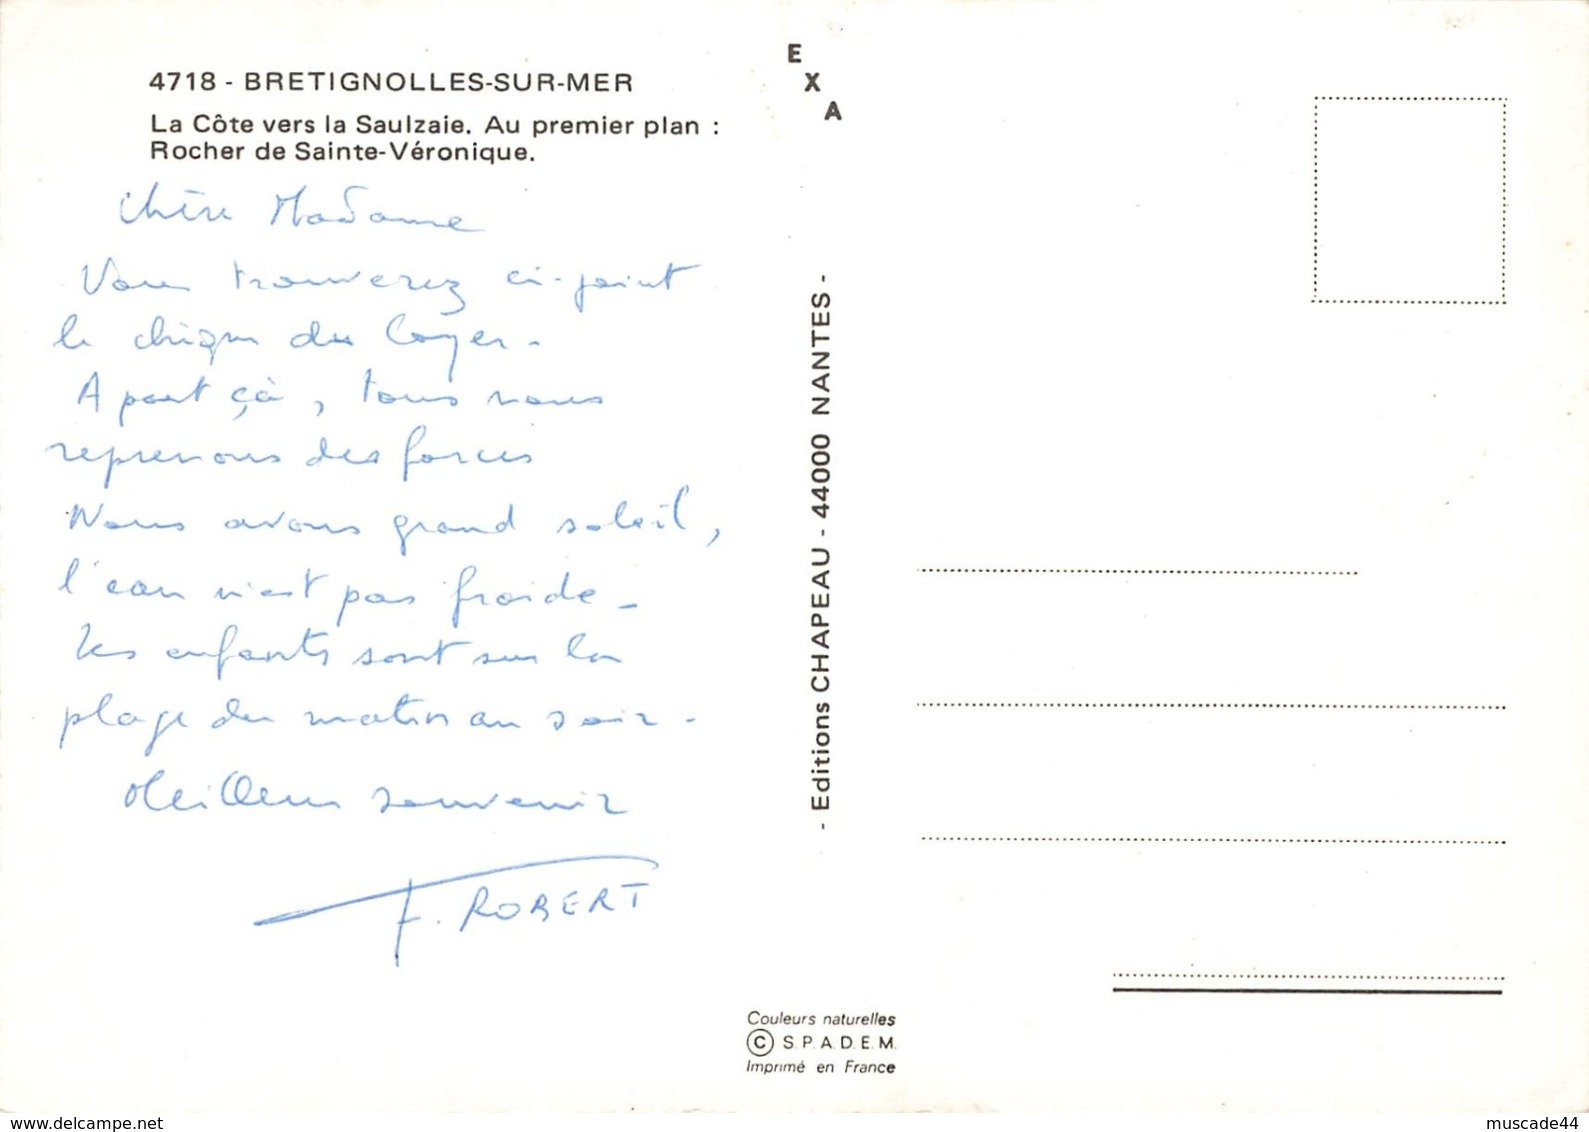 4718 - BRETIGNOLLES-SUR-MER
La Côte vers la Saulzaie. Au premier plan :
Rocher de Sainte-Véronique.
Chère Madame
Vous trouverez ci-joint
le chèque du Loyer -
A part çà, tous nous
reprenons des forces
Nous avons grand soleil,
l'eau n'est pas froide -
Les enfants sont sur la
plage du matin au soir -
Meilleur souvenir
F. ROBERT
EXA
- Editions CHAPEAU - 44000 NANTES -
Couleurs naturelles
© S.P.A.D.E.M.
Imprimé en France
www.delcampe.net
muscade44